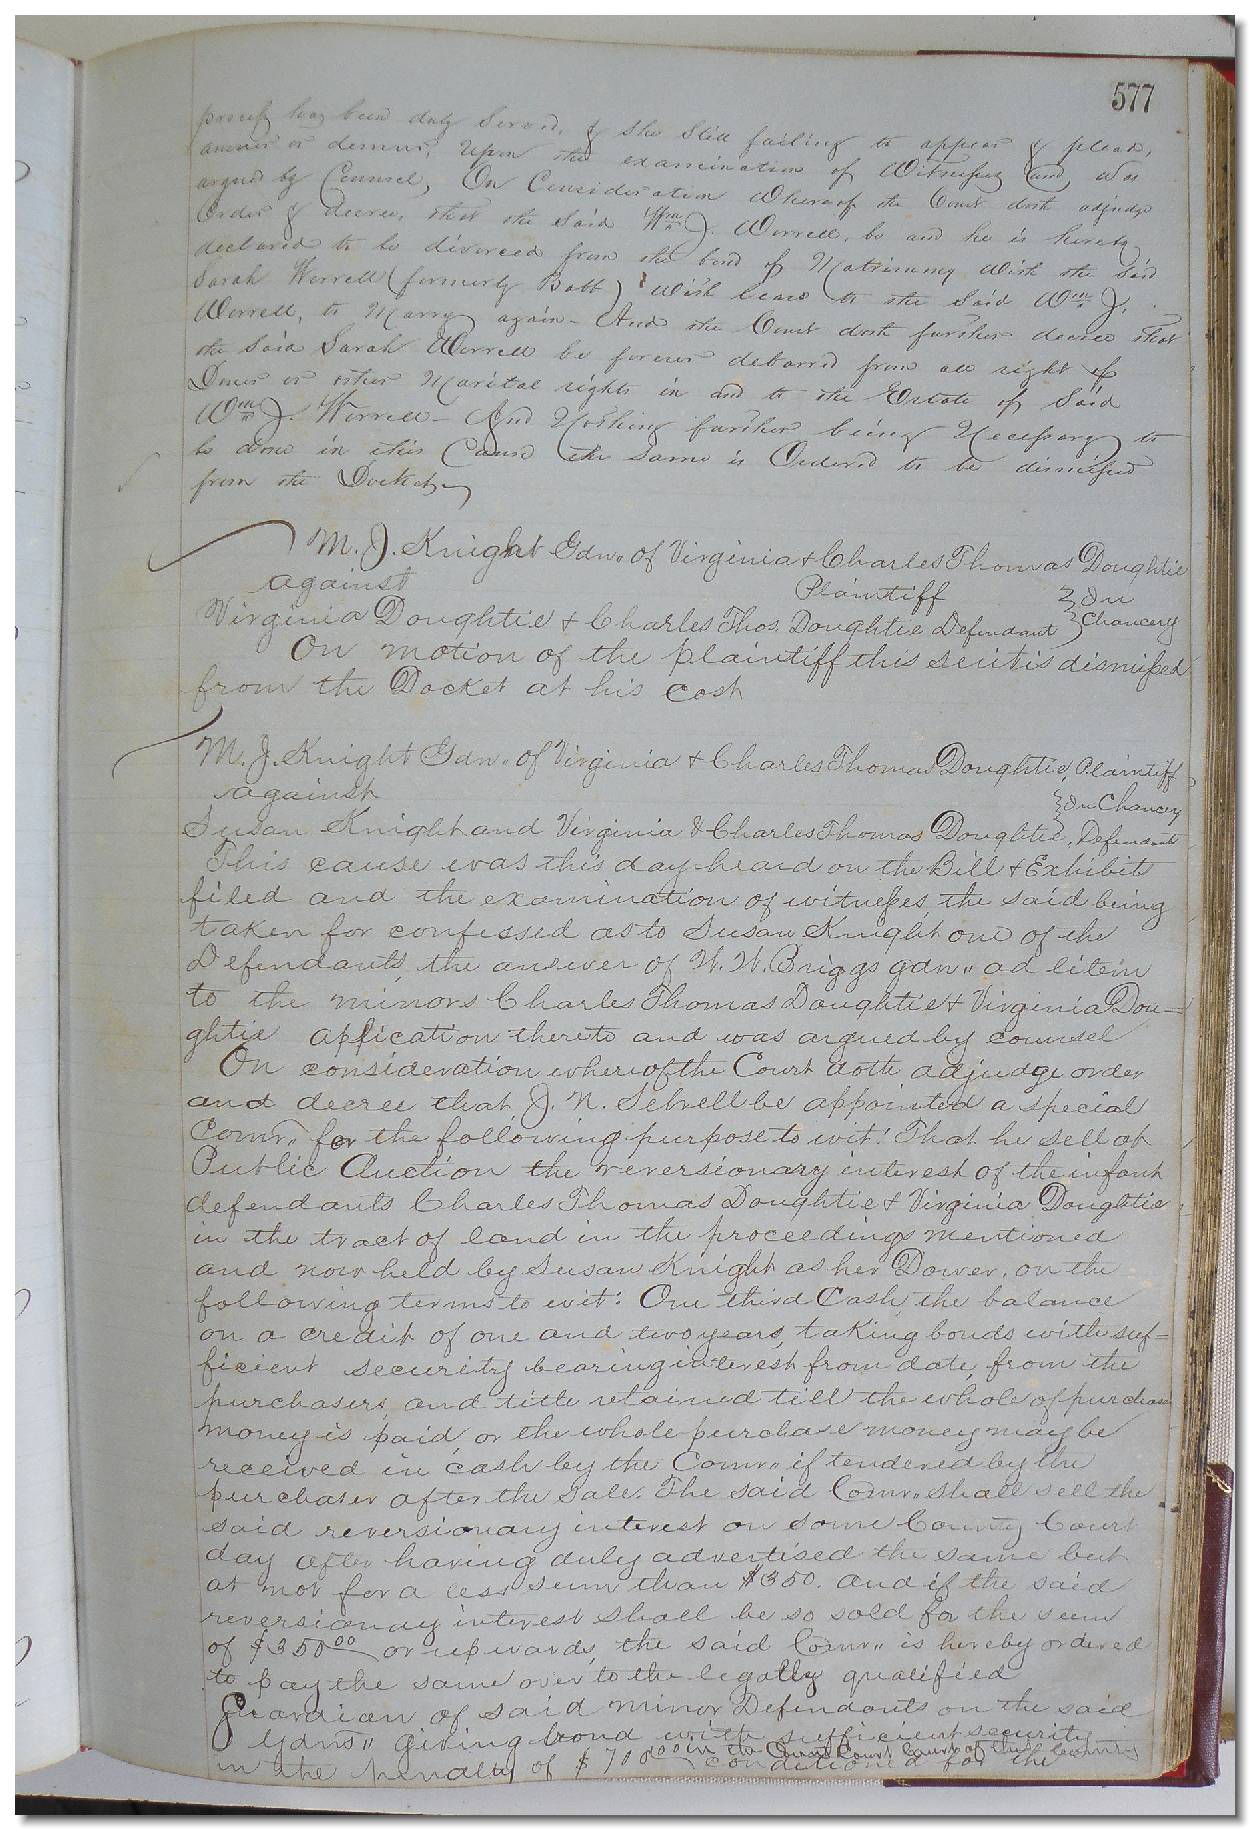 577
process has been duly Served, & she Still failing to appear & plead,
answer or demur, Upon the examination of Witnesses and was
argued by Counsel, On Consideration Whereof the Court doth adjudge
Order & decree, that the said Wm J. Worrell, be and he is hereby
declared to be divorced from the bond of Matrimony with the said
Sarah Worrell (formerly Babb) with leave to the said Wm J.
Worrell, to Marry again - And the Court doth further decree that
the said Sarah Worrell be forever debarred from all right of
Dower or other Marital rights in and to the Estate of Said
Wm J. Worrell - And Nothing further being Necessary to
be done in this Cause the same is Ordered to be dismissed
from the Docket
M. J. Knight Gdn. of Virginia & Charles Thomas Doughtie
against Plaintiff } In
Virginia Doughtie & Charles Thos. Doughtie Defendant } Chancery
On motion of the plaintiff this suit is dismissed
from the Docket at his cost
M. J. Knight Gdn. of Virginia & Charles Thomas Doughtie, Plaintiff
against } In Chancery
Susan Knight and Virginia & Charles Thomas Doughtie, Defendant
This cause was this day heard on the Bill & Exhibit
filed and the examination of witnesses, the said being
taken for confessed as to Susan Knight one of the
Defendants, the answer of W. W. Briggs gdn. ad litem
to the minors Charles Thomas Doughtie & Virginia Dou=
ghtie application thereto and was argued by counsel
On consideration whereof the Court doth adjudge order
and decree that J. N. Sebrell be appointed a special
Comr. for the following purpose to wit: That he sell at
Public Auction the reversionary interest of the infant
defendants Charles Thomas Doughtie & Virginia Doughtie
in the tract of land in the proceedings mentioned
and now held by Susan Knight as her Dower, on the
following terms to wit: One third Cash, the balance
on a credit of one and two years, taking bonds with suf=
ficient security bearing interest from date, from the
purchasers, and title retained till the whole of purchase
money is paid, or the whole purchase money may be
received in cash by the Comr. if tendered by the
purchaser after the sale. The said Comr. shall sell the
said reversionary interest on some County Court
day after having duly advertised the same but
at not for a less sum than $350. and if the said
reversionary interest shall be so sold for the sum
of $350.00 or upwards, the said Comr. is hereby ordered
to pay the same over to the legally qualified
Guardian of said minor Defendants on the said
Gdns. giving bond with sufficient security
in the penalty of $700.00 in the Court of this County conditioned for the